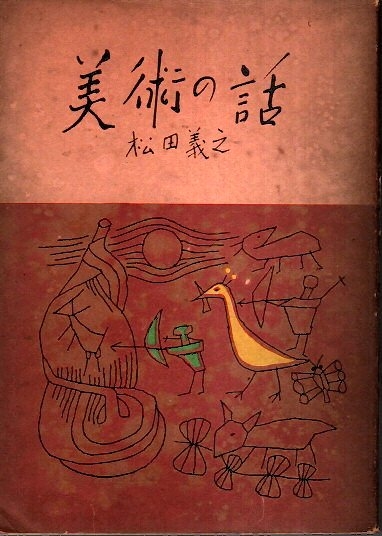 美術の話
松田義之